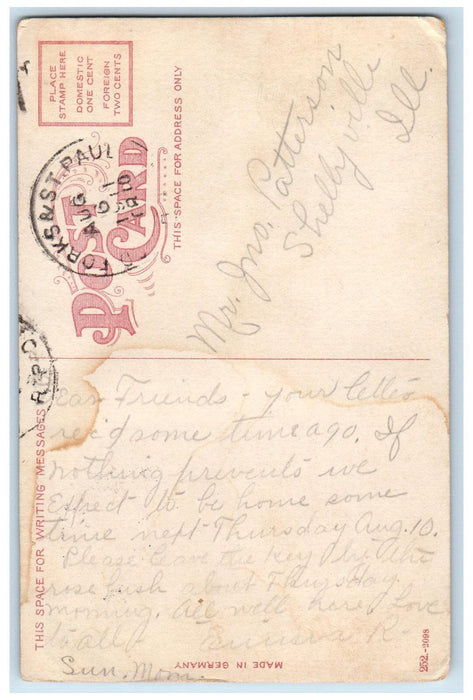 PLACE
STAMP HERE
DOMESTIC
ONE CENT
FOREIGN
TWO CENTS
FORKS & ST. PAUL
AUG
R.P.O.
POST
CARD
THIS SPACE FOR ADDRESS ONLY
Mr. Jno. Patterson
Shelbyville
Ill.
THIS SPACE FOR WRITING MESSAGES
ear Friends - your letter
rec'd some time ago. If
nothing prevents we
Expect to be home some
time next Thursday Aug. 10.
Please leave the key by the
rose bush about Thursday
morning. All well here. Love
to all - R-
Sun. Morn.
MADE IN GERMANY
252.-2098